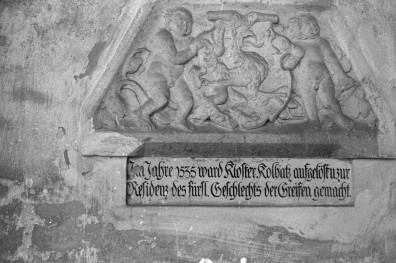 Im Jahre 1535 ward Kloster Kolbatz aufgelöst u. zur
Residenz des fürstl. Geschlechts der Greifen gemacht.